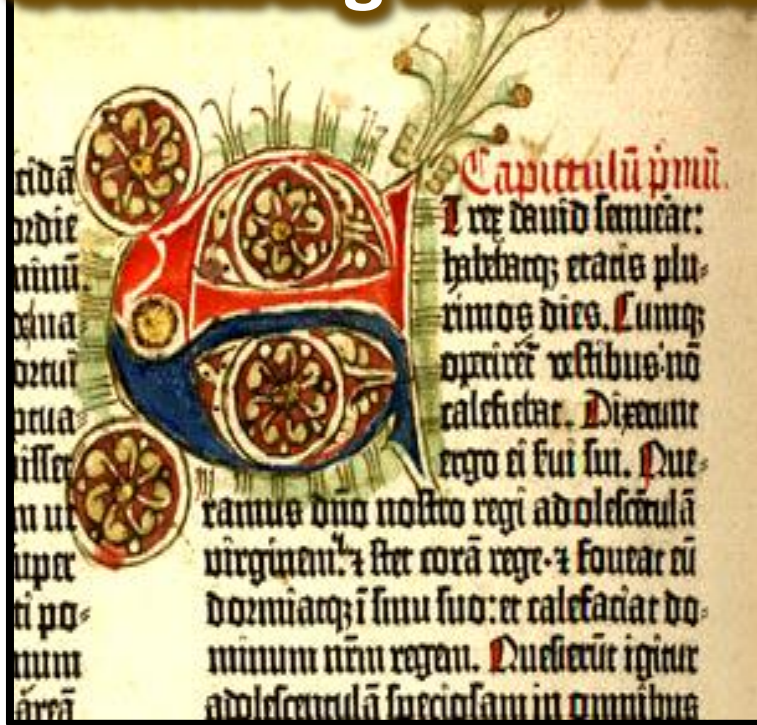 cidā
ordie
minū.
ortui
isset
n ut
uper
ti po⸗
num
areā
E
Capitulū pͥmū.
T rex dauid senuerat:
habebatqꝫ etatis plu⸗
rimos dies. Cumqꝫ
operiret᷑ vestibus· nō
calefiebat. Dixerunt
ergo ei ẜui sui. Que⸗
ramus dn̄o nostro regi adolescētulā
virginem: ⁊ stet corā rege· ⁊ foueat eū
dormiatqꝫ ī sinu suo: et calefaciat do⸗
minum nr̄m regem. Quesierūt igitur
adolescentulā speciosam in omnibus